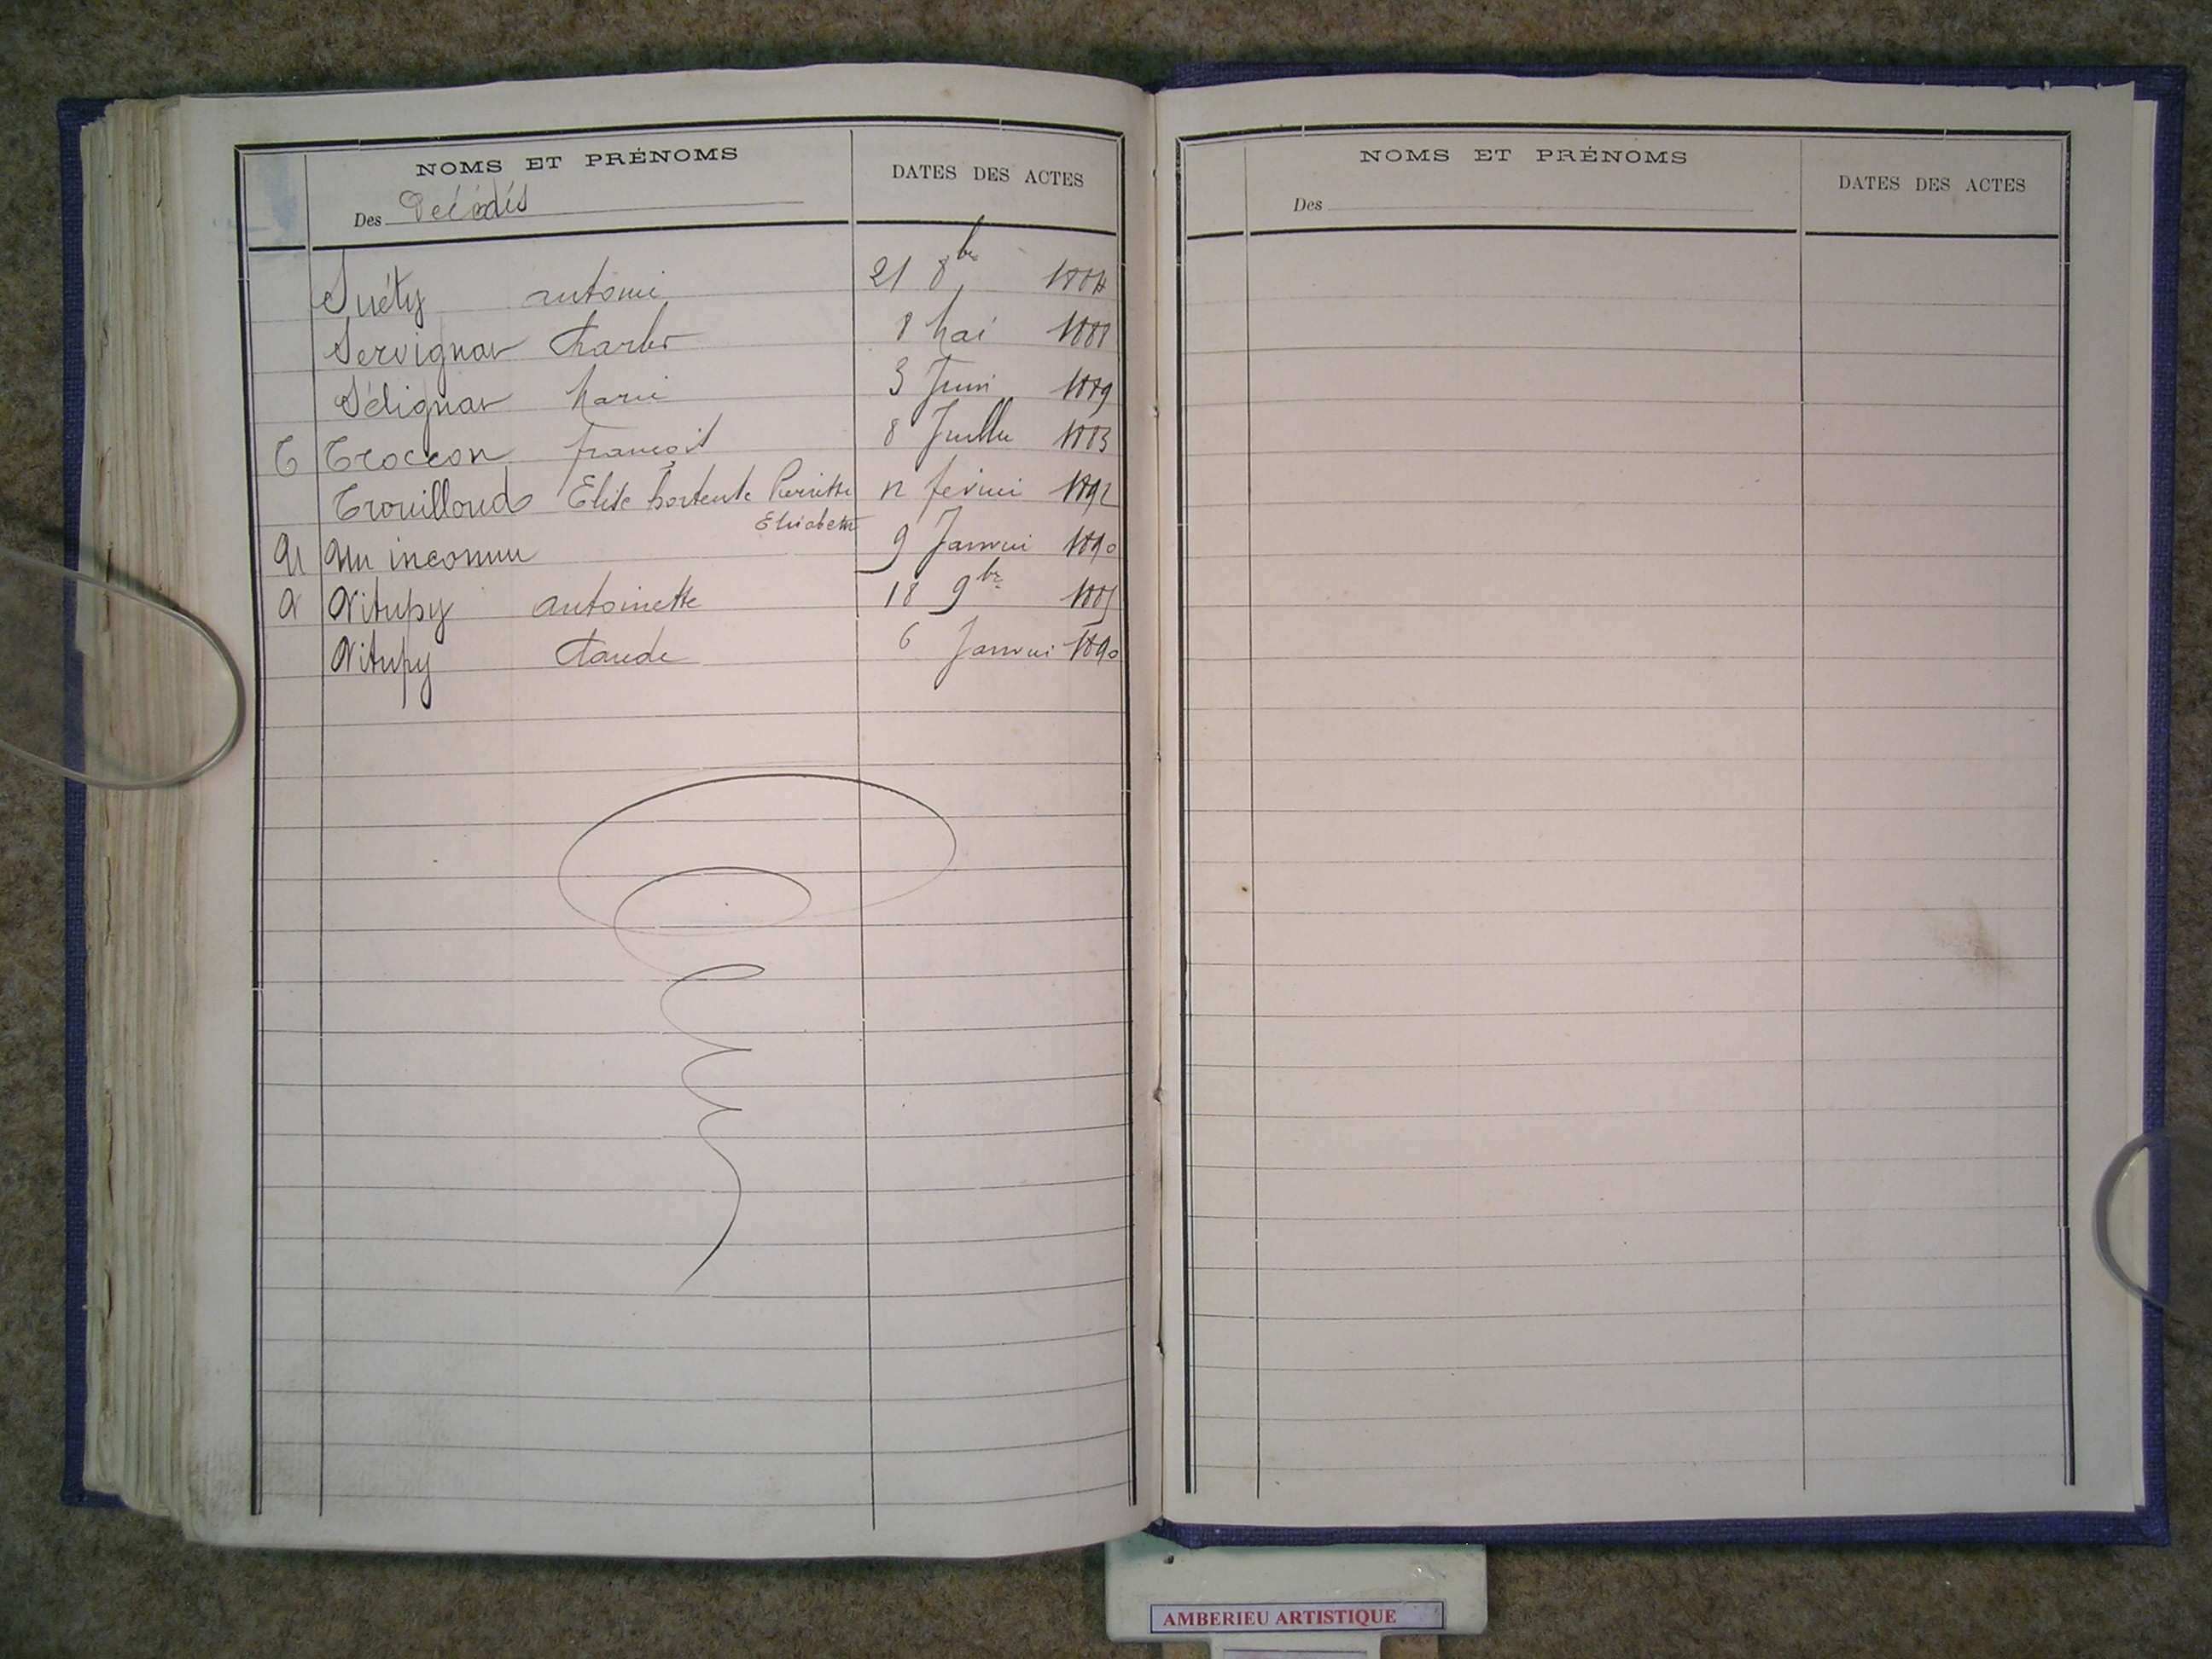 NOMS ET PRÉNOMS
DATES DES ACTES
Des Décédés
Suéty antoine 21 8bre 1884
Servignat Charles 8 Mai 1888
Sélignat Marie 3 Juin 1889
T Troccon françois 8 Juillet 1883
Trouilloud Elise hortense Pierrette 12 février 1892
Elisabeth
U Un inconnu 9 Janvier 1890
V Vitupy antoinette 18 9bre 1885
Vitupy Claude 6 Janvier 1890
NOMS ET PRÉNOMS
DATES DES ACTES
Des
AMBERIEU ARTISTIQUE